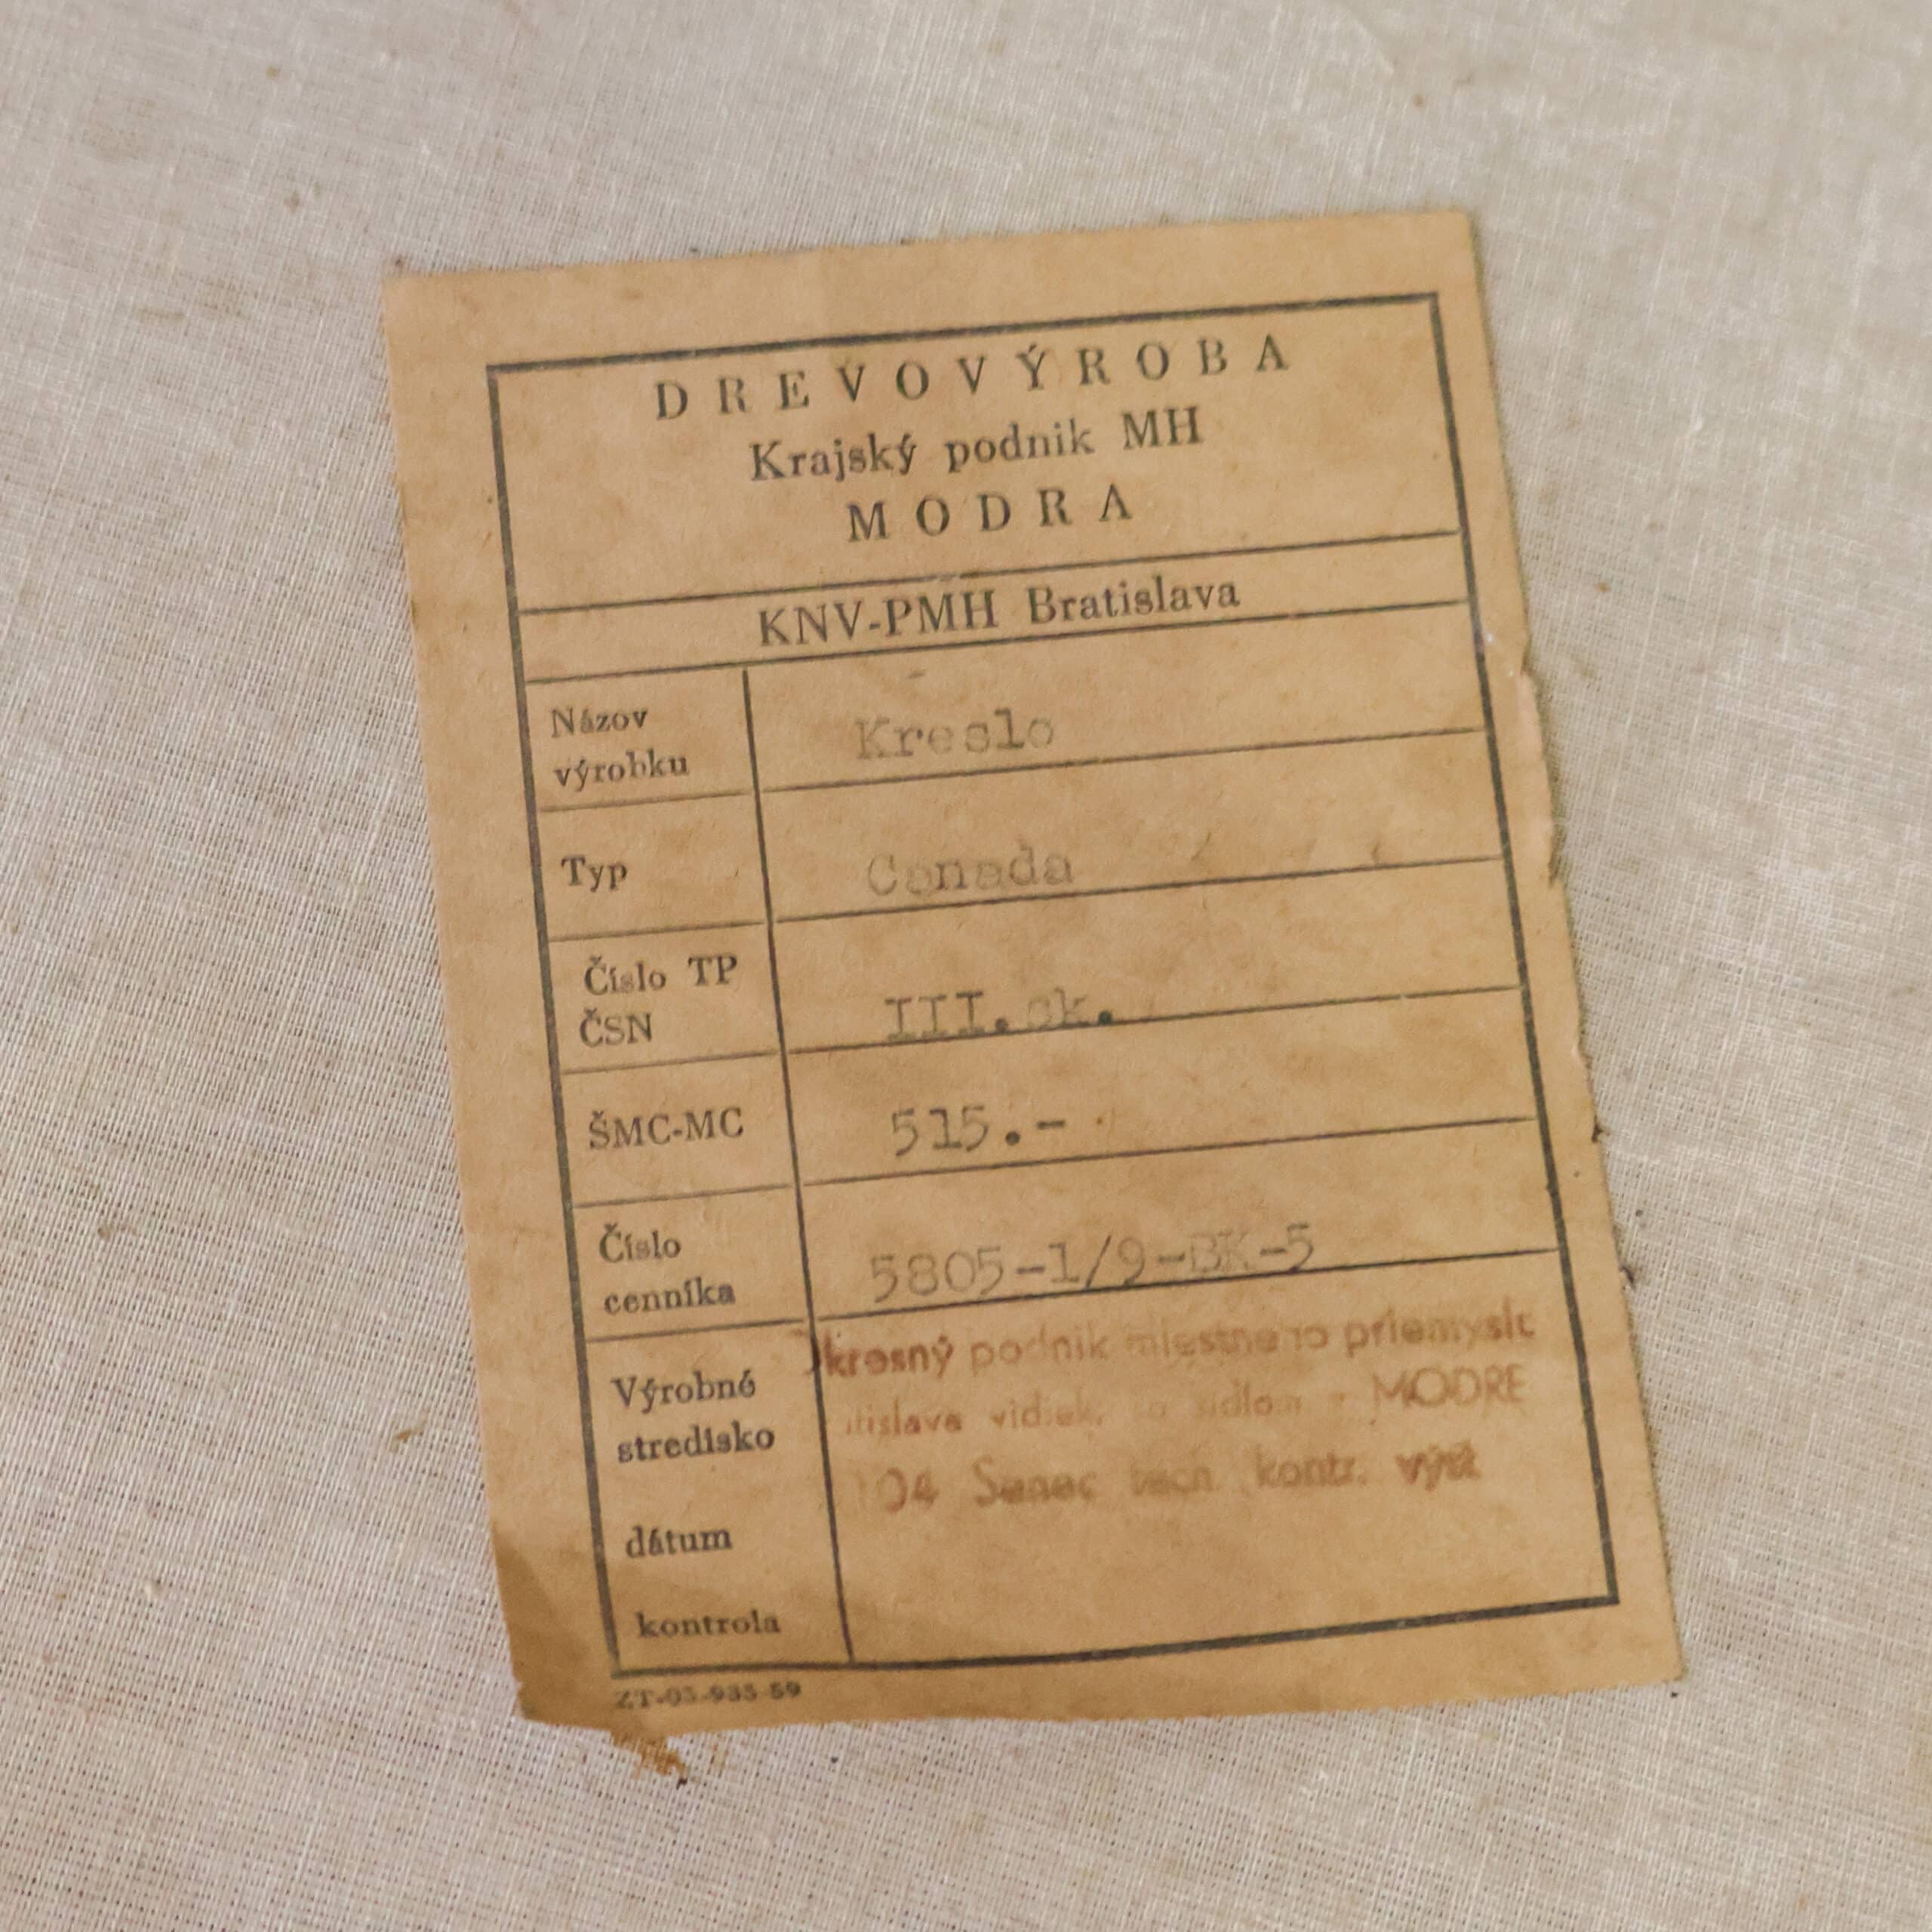 DREVOVÝROBA
Krajský podnik MH
MODRA
KNV-PMH Bratislava
Názov výrobku Kreslo
Typ Canada
Číslo TP ČSN III.sk.
ŠMC-MC 515.-
Číslo cenníka 5805-1/9-BK-5
Výrobné stredisko
podnik miestneho priemyslu
vidiek, so sídlom MODRE
104 Senec tech. kontr. výst
dátum
kontrola
ZT-03-935-59